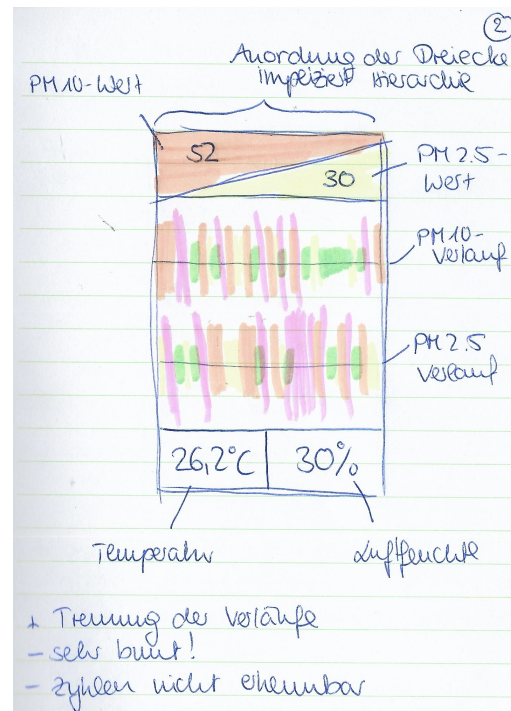 2
Anordnung der Dreiecke
impliziert Hierarchie
PM10-Wert
52
30
PM 2.5-
Wert
PM10-
Verlauf
PM 2.5
Verlauf
26,2°C
30%
Temperatur
Luftfeuchte
+ Trennung der Verläufe
- sehr bunt!
- Zyklen nicht erkennbar